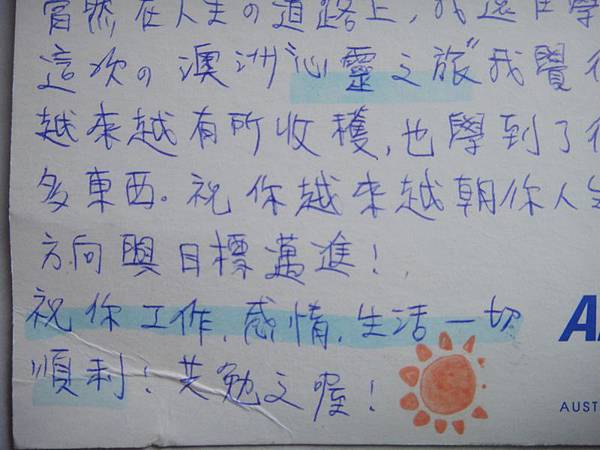 當然在人生の道路上，我還在學
這次の澳洲"沁靈之旅"我覺得
越來越有所收穫，也學到了很
多東西。祝你越來越朝你人生
方向與目標邁進！
祝你工作，感情，生活一切
順利！共勉之喔！
AUST